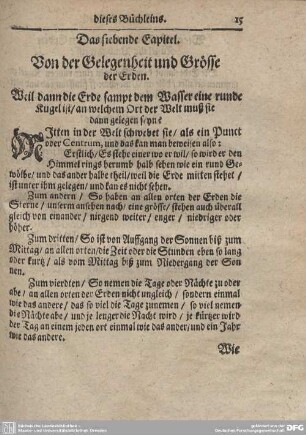 dieses Büchleins. 15
Das siebende Capitel.
Von der Gelegenheit und Grösse
der Erden.
Weil dann die Erde sampt dem Wasser eine runde
Kugel ist/ an welchem Ort der Welt muß sie
dann gelegen seyn?
MJtten in der Welt schwebet sie/ als ein Punct
oder Centrum, und das kan man beweisen also:
Erstlich/ Es stehe einer wo er woll/ so wird er den
Himmel rings herumb halb sehen wie ein rund Ge-
wölbe/ und das ander halbe theil/ weil die Erde mitten stehet/
ist unter ihm gelegen/ und kan es nicht sehen.
Zum andern/ So haben an allen orten der Erden die
Sterne/ unserm ansehen nach/ eine grösse/ stehen auch überall
gleich von einander/ nirgend weiter/ enger/ niedriger oder
höher.
Zum dritten/ So ist von Auffgang der Sonnen biß zum
Mittag/ an allen orten/ die Zeit oder die Stunden eben so lang
oder kurtz/ als vom Mittag biß zum Niedergang der Son
nen.
Zum vierdten/ So nemen die Tage oder Nächte zu oder
abe/ an allen orten der Erden nicht ungleich/ sondern einmal
wie das andere/ das so viel die Tage zunemen/ so viel nemen
die Nächte abe/ und je lenger die Nacht wird/ je kürtzer wird
der Tag an einem jeden ort einmal wie das ander/ und ein Jahr
wie das andere.
Wie
DFG